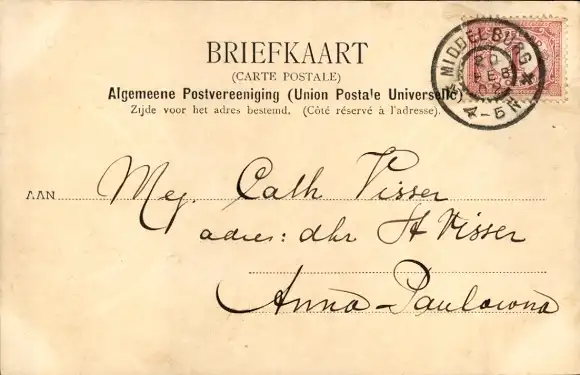 BRIEFKAART
(CARTE POSTALE)
Algemeene Postvereeniging (Union Postale Universelle)
Zijde voor het adres bestemd. (Côté réservé à l'adresse).
MIDDELBURG
20
FEB
02
4-5 N
AAN Mej. Cath Visser
adres: dhr H Visser
Anna-Paulowna